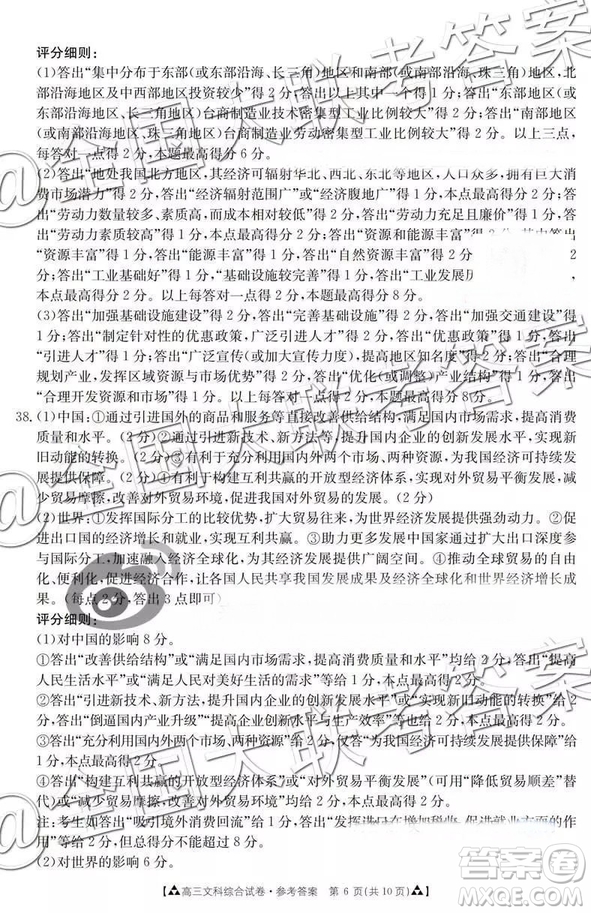 评分细则：
(1)答出“集中分布于东部(或东部沿海、长三角)地区和南部(或南部沿海、珠三角)地区，北
部沿海地区及中西部地区投资较少”得2分；答出以上其中一个得1分；答出“东部地区(或
东部沿海地区、长三角地区)台商制造业技术密集型工业比例较大”得2分；答出“南部地区
(或南部沿海地区、珠三角地区)台商制造业劳动密集型工业比例较大”得2分。以上三点，
每答对一点得2分，本题最高得分6分。
(2)答出“地处我国北方地区，其经济可辐射华北、西北、东北等地区，人口众多，拥有巨大消
费市场潜力”得2分，答出“经济辐射范围广”或“经济腹地广”得1分，本点最高得2分；答
出“劳动力数量较多、素质高，而成本较低”得2分，答出“劳动力充足且廉价”得1分，答出
“劳动力素质较高”得1分，本点最高得分2分；答出“资源和能源丰富”得2分，答出“能源
丰富”或“资源丰富”得1分，答出“自然资源丰富”
2
分；答出“工业基础好”得1分，“基础设施较完善”得1分，答出“工业发展历
本点最高得分2分。以上每答对一点得2分，本题最高得分8分。
(3)答出“加强基础设施建设”得2分，答出“完善基础设施”或答出“加强交通建设”等得1
1分；答出“制定针对性的优惠政策，广泛引进人才”得2分，答出“优惠政策”得1分，答出
“引进人才”得1分；答出“广泛宣传，加强区域间沟通与联系”等得2分；答出“合理
规划产业，发挥区域资源与市场优势”得2分，答出“优化(或调整)产业结构”得1分，答出
“合理开发利用资源”得1分。以上每答对一点得2分，本题最高得分8分。
38.(1)中国：①通过引进国外的商品和服务等直接改善供给结构，满足国内市场需求，提高消费
质量和水平。(2分)②通过引进新技术、新方法等，提升国内企业的创新发展水平，实现新
旧动能的转换。(2分)③有利于充分利用国内外两个市场、两种资源，为我国经济可持续发
展提供保障。(2分)④有利于构建互利共赢的开放型经济体系，实现对外贸易平衡发展，减
少贸易摩擦，改善对外贸易环境，促进我国对外贸易的发展。(2分)
(2)世界：①发挥国际分工的比较优势，扩大贸易往来，为世界经济的增长提供动力。②促
进出口国的经济增长和就业，实现互利共赢。③帮助更多发展中国家通过扩大出口深度参
与国际分工，加快融入经济全球化，为其经济发展提供广阔空间。④推动全球贸易的自由
化、便利化，促进经济合作，让各国人民共享我国发展成果及经济全球化和世界经济增长成
果。(每点2分，答出3点即可)
评分细则：
(1)对中国的影响8分。
①答出“改善供给结构”或“满足国内市场需求，提高消费质量和水平”均给2分，若考生答
出“满足人民生活水平”或“满足人民对美好生活的需要”等给1分。
②答出“引进新技术、新方法，提升企业创新发展水平”或“实现新旧动能的转换”给2分，
若答出“倒逼国内产业升级”“提高企业创新水平与生产效率”等也给2分。
③答出“充分利用国内外两个市场、两种资源”或“为我国经济可持续发展提供保障”给2
分。
④答出“构建互利共赢的开放型经济体系”或“对外贸易平衡发展(可用“降低贸易顺差”替
代)或“减少贸易摩擦，改善对外贸易环境”均给2分。
注：考生如答出“吸引境外消费回流”给1分，答出“发挥进口在增加税收、促进就业方面的
作用”等给2分，但总得分不能超过8分。
(2)对世界的影响6分。
高三文科综合试卷·参考答案 第6页(共10页)
@全国大联考答案
@全国大联考答案
@全国大联考答案
答案圈
MXQE.COM